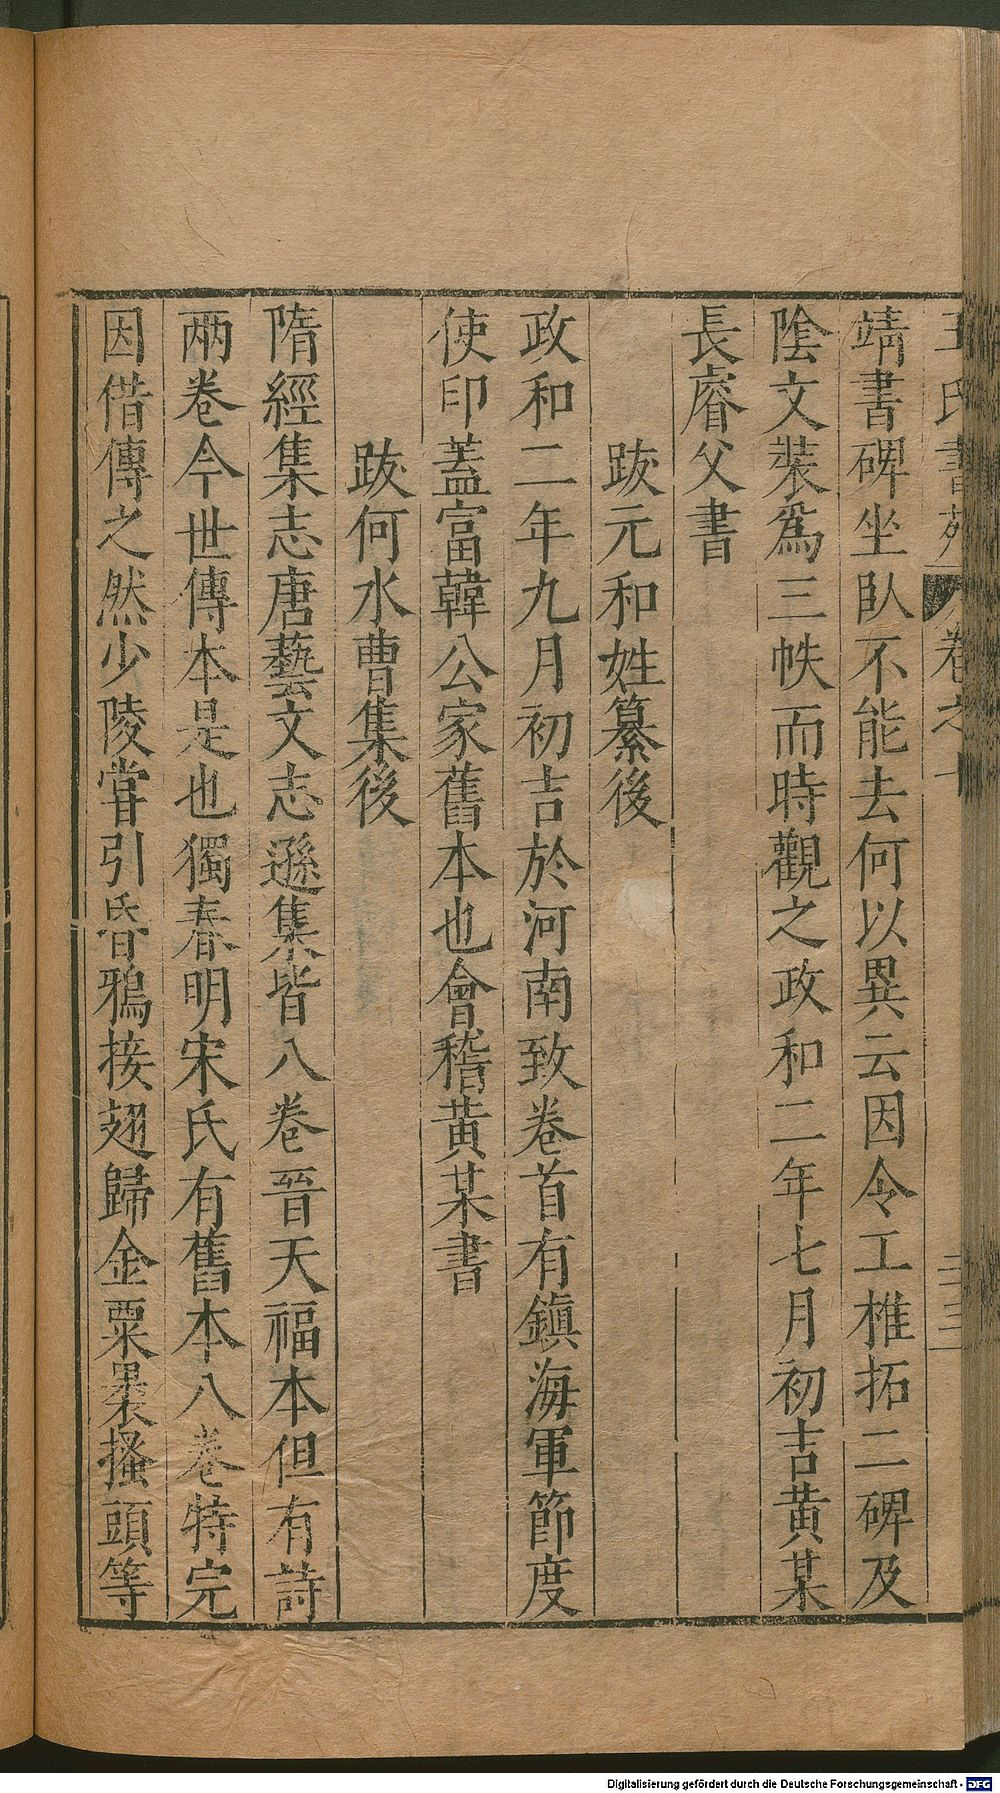 王氏書苑 卷之 二三
靖書碑坐臥不能去何以異云因令工椎拓二碑及
陰文裝爲三帙而時觀之政和二年七月初吉黃某
長睿父書
跋元和姓纂後
政和二年九月初吉於河南致卷首有鎮海軍節度
使印蓋富韓公家舊本也會稽黃某書
跋何水曹集後
隋經集志唐藝文志遜集皆八卷晉天福本但有詩
兩卷今世傳本是也獨春明宋氏有舊本八卷特完
因借傳之然少陵嘗引昏鴉接翅歸金粟裹搔頭等
Digitalisierung gefördert durch die Deutsche Forschungsgemeinschaft - DFG